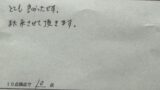 とても良かったです。
又来させて頂きます。
10点満点で 10 点